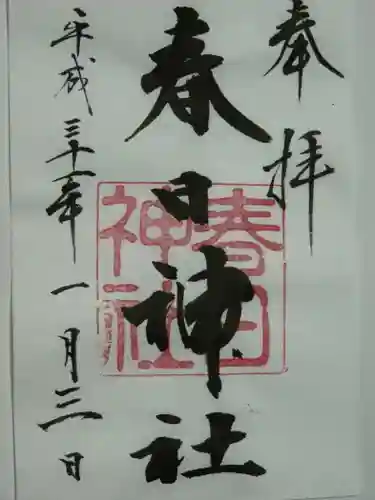 奉拝
春日神社
春日神社
平成三十一年一月三日